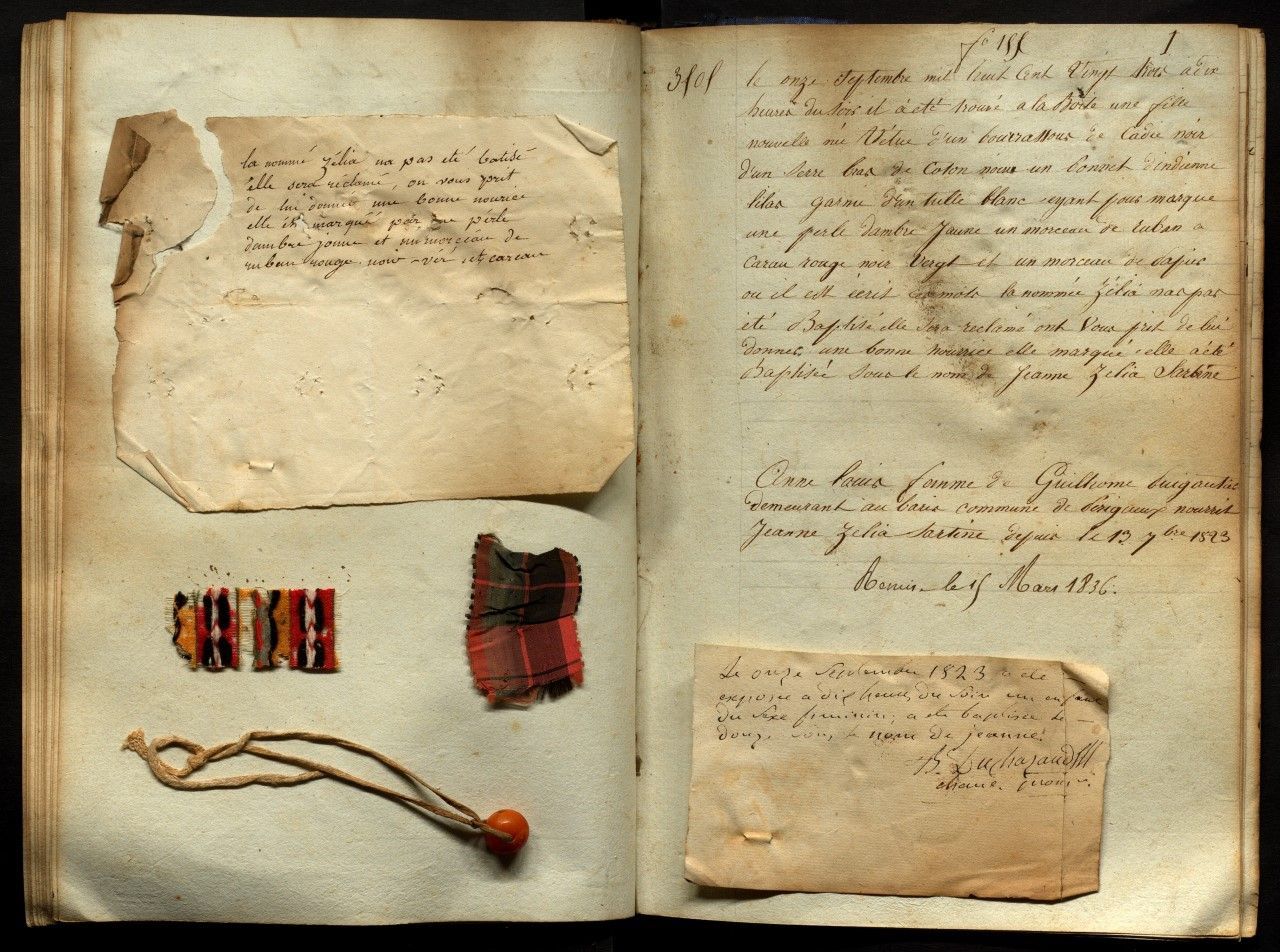 la nommé Zélia na pas été batisé
elle sera réclamé, on vous prit
de lui donner une bonne nourice
elle est marquéé par une perle
dambre jonne et un morceau de
ruban rouge noir vér et careau
fo 155 1
3505 le onze Septembre mil huit Cent Vingt trois a dix
heures du soir il à été trouvé a la Boite une fille
nouvelle né Vétue d'un bourrassous de Cadie noir
d'un Serre bras de Coton un bonnet d'indienne
lilas garnie d'un tulle blanc ayant pour marque
une perle dambre Jaune un morceau de ruban a
carau rouge noir Vergt et un morceau de papié
ou il est ecrit ces mots la nommée Zélia nas pas
été Baptisé elle sera reclamé ont Vous prit de lui
donner une bonne nourrice elle marqué elle a été
Baptisée Sous le nom de Jeanne Zelia Sartine
Anne femme de Guilhome
demeurant au commune de nourrit
Jeanne Zelia Sartine depuis le 13 7bre 1823
Remis le 15 Mars 1836.
Le onze Septembre 1823 a été
exposée a dix heures du soir un enfant
du sexe feminin; a été baptisée le
douze sous le nom de jeanne.